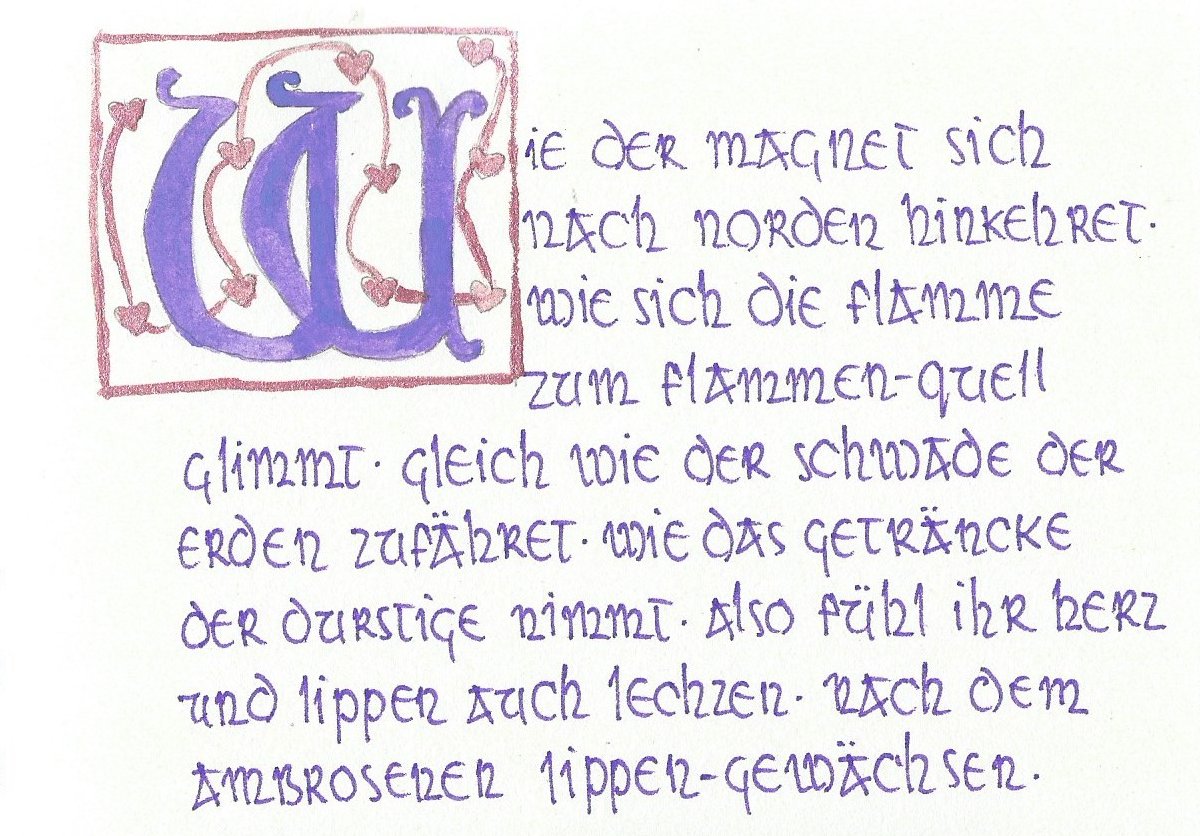 Wie der magnet sich
nach norden hinkehret·
wie sich die flamme
zum flammen-quell
glimmt· gleich wie der schwade der
erden zufähret· wie das geträncke
der durstige nimmt· also fühl ihr herz
und lippen auch lechzen· nach dem
ambrosenen lippen-gewächsen·